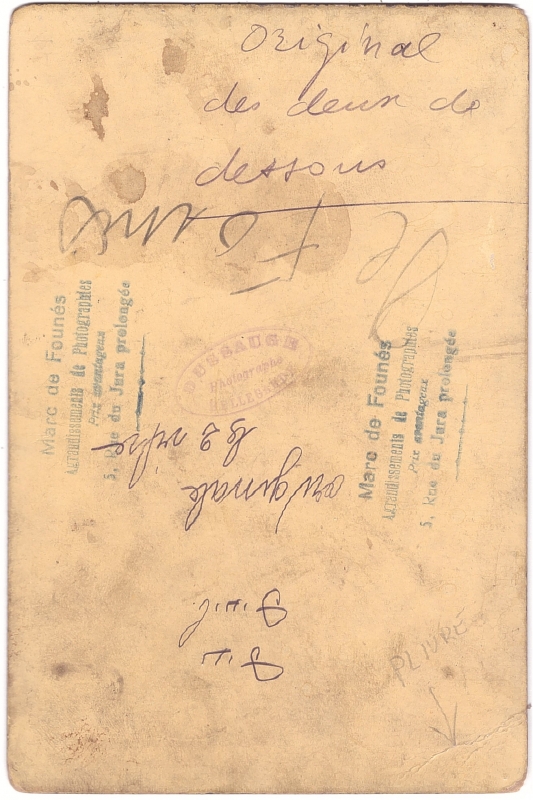 Original
des deux de
dessous
Marc de Founés
Agrandissements de Photographies
Prix avantageux
5, Rue du Jura prolongée
DUSSAUGE
Photographe
BELLEGARDE
Marc de Founés
Agrandissements de Photographies
Prix avantageux
5, Rue du Jura prolongée
originale
PLIURE